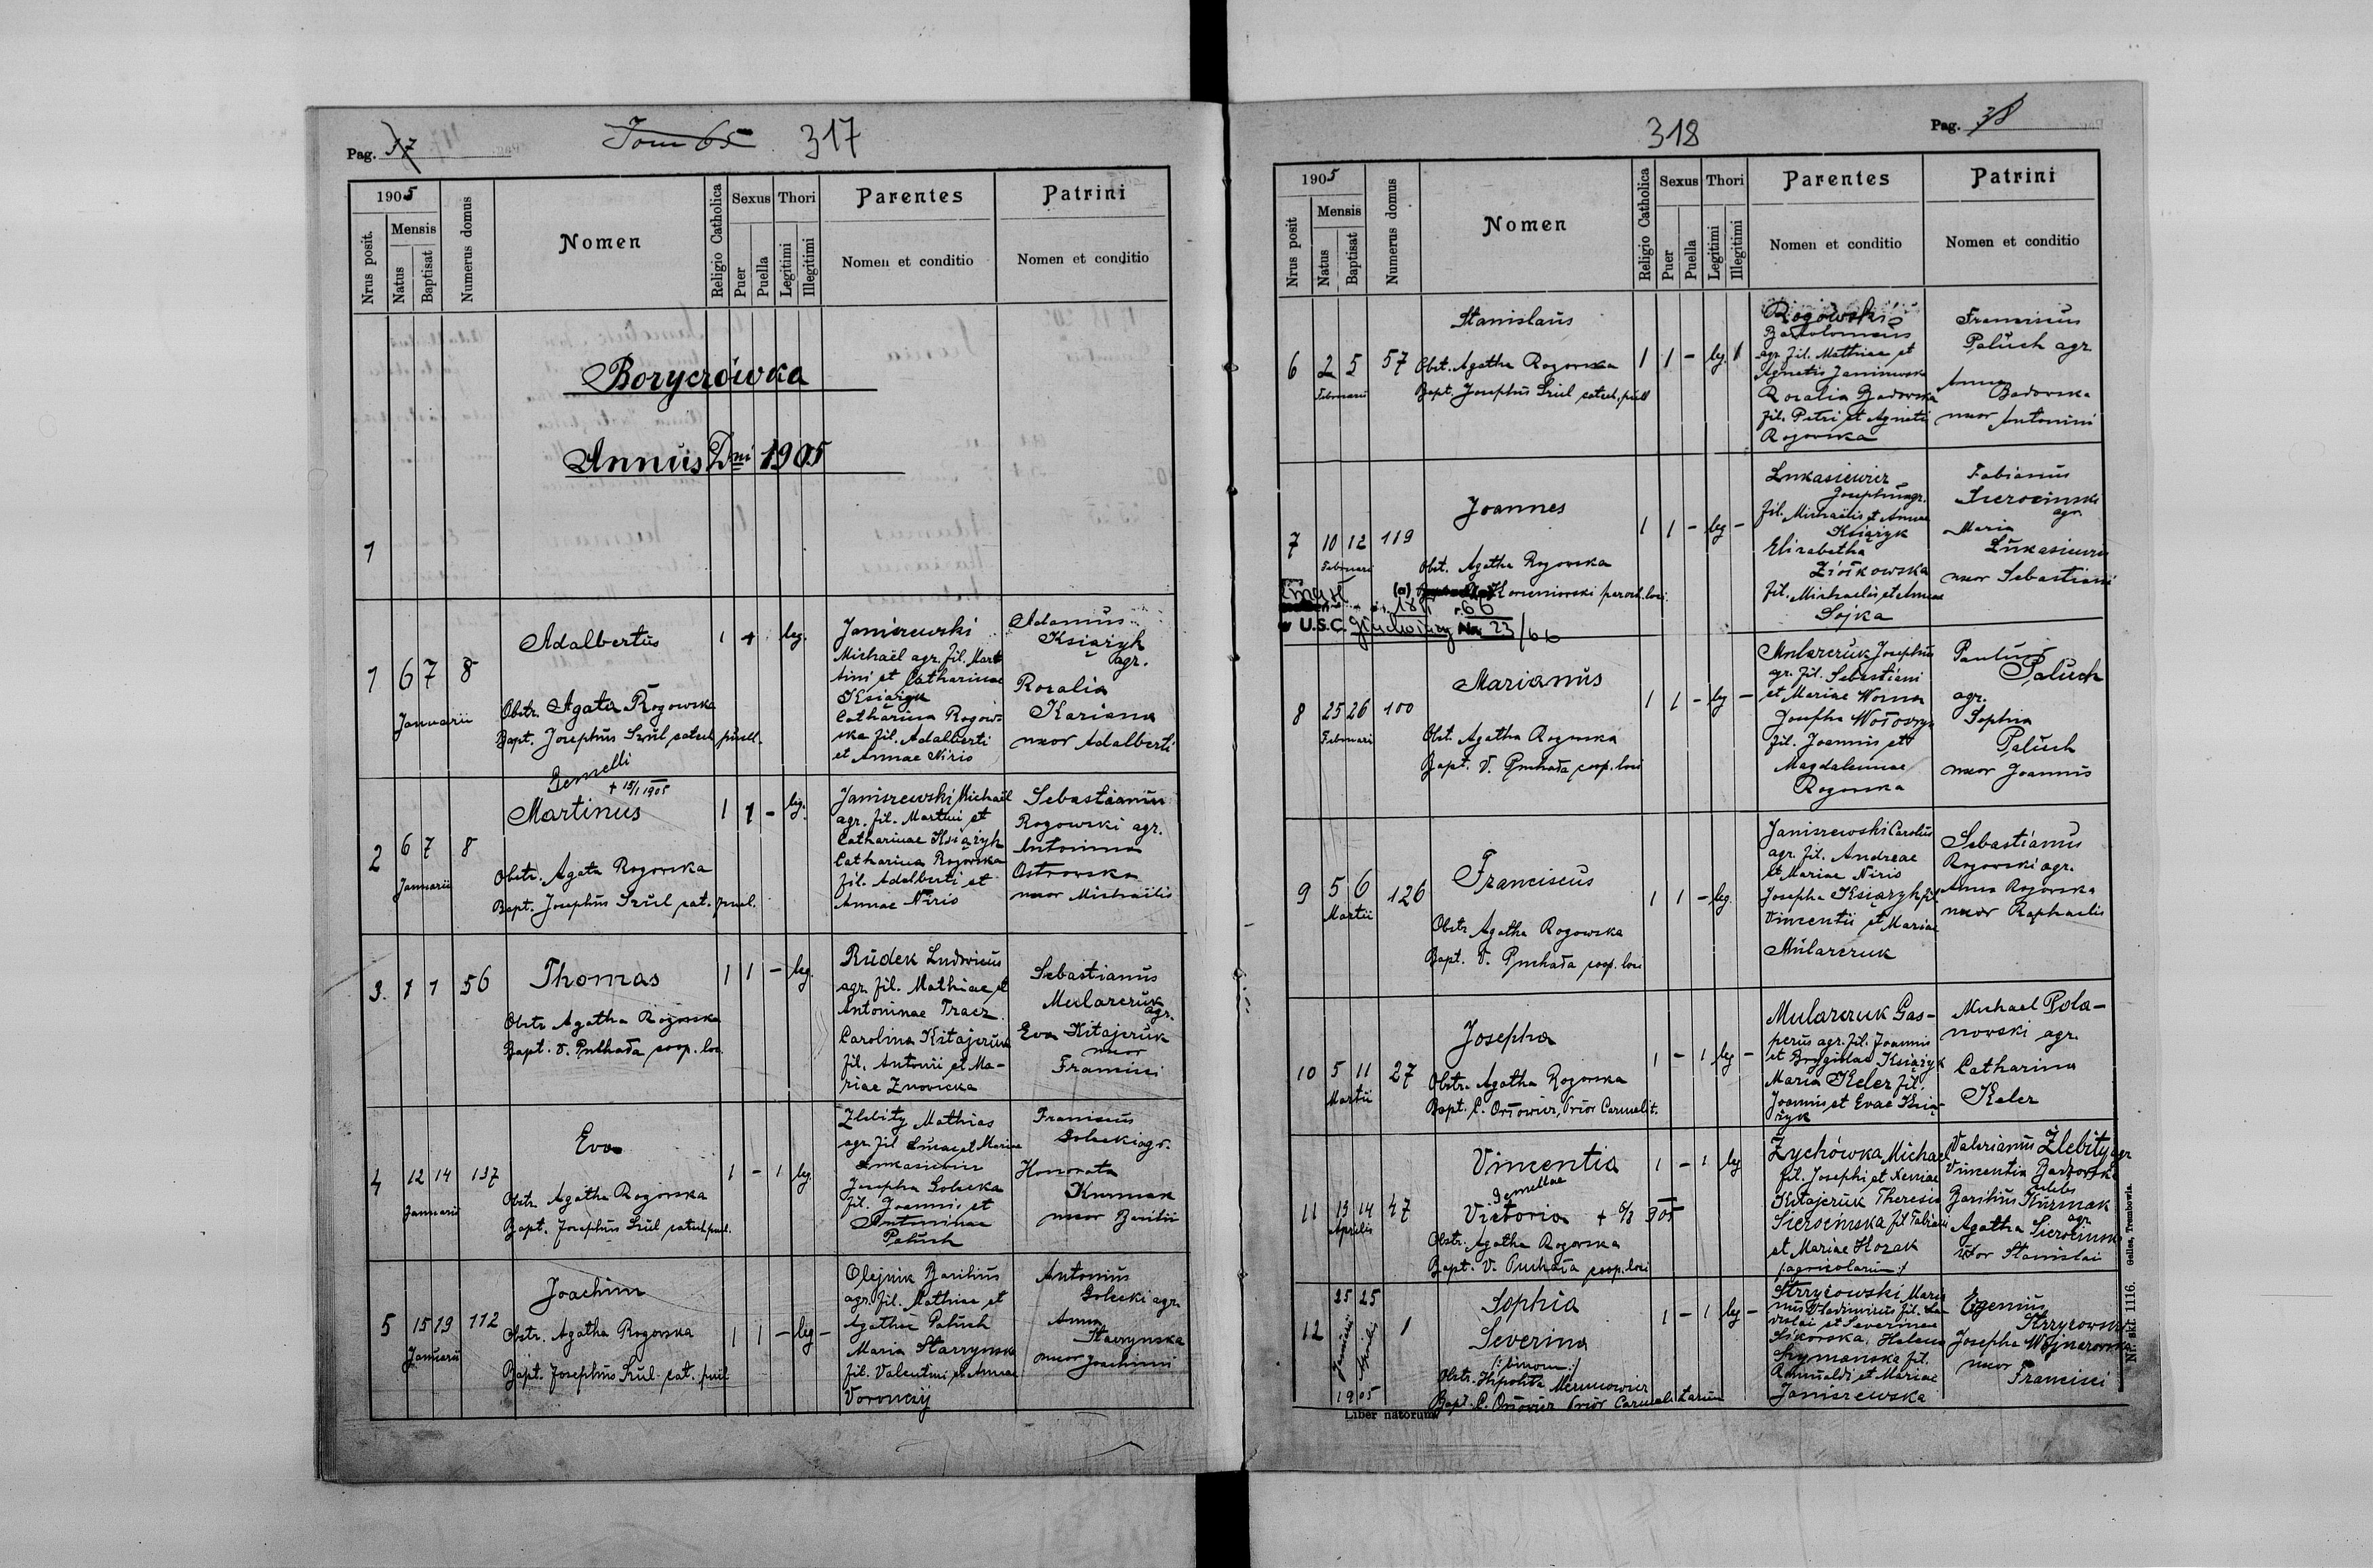 Pag. 37
Tom 65 317
1905
Nrus posit.
Mensis
Natus
Baptisat
Numerus domus
Nomen
Religio Catholica
Sexus
Puer
Puella
Thori
Legitimi
Illegitimi
Parentes
Nomen et conditio
Patrini
Nomen et conditio
Boryczówka
Annus Dni 1905
1
1 6 7 8
Januarii
Adalbertus
Obstr. Agata Rogowska
Bapt. Josephus Szul catech. puell.
1 1 leg.
Janiszewski
Michaël agr. fil. Mart
tini et Catharinae
Książyk
Catharina Rogow-
ska fil. Adalberti
et Annae Niris
Adamus
Książyk
agr.
Rozalia
Kariana
uxor Adalberti
2 6 7 8
Januarii
Gemelli
+ 15/1 1905
Martinus
Obstr. Agata Rogowska
Bapt. Josephus Szul cat. puel.
1 1 - leg.
Janiszewski Michaël
agr. fil. Martini et
Catharinae Książyk
Catharina Rogowska
fil. Adalberti et
Annae Niris
Sebastianus
Rogowski agr.
Antonina
Ostrowska
uxor Michaëlis
3. 1 1 56
Thomas
Obstr. Agatha Rogowska
Bapt. V. Puchała coop. loc.
1 1 - leg.
Rudek Ludovicus
agr. fil. Mathiae et
Antoninae Tracz
Carolina Kitajczuk
fil. Antonii et Ma-
riae Znovicka
Sebastianus
Mularczuk
agr.
Eva Kitajczuk
uxor
Francisci
4 12 14 137
Januarii
Eva
Obstr. Agatha Rogowska
Bapt. Josephus Szul catech. puel.
1 - 1 leg.
Zlebity Mathias
agr. fil. Lucae et Mariae
Lukasiewicz
Josepha Golecka
fil. Joannis et
Antoninae
Paluch
Franciscus
Golecki agr.
Honorata
Kurmak
uxor Basilii
5 15 19 112
Januarii
Joachim
Obstr. Agatha Rogowska
Bapt. Josephus Szul cat. puel
1 1 - leg -
Olejnik Basilius
agr. fil. Mathiae et
Agathae Paluch
Maria Starzynska
fil. Valentini et Annae
Antonius
Golecki agr.
Anna
Starzynska
uxor Joachimi
318
Pag. 38
1905
Nrus posit
Mensis
Natus
Baptisat
Numerus domus
Nomen
Religio Catholica
Sexus
Puer
Puella
Thori
Legitimi
Illegitimi
Parentes
Nomen et conditio
Patrini
Nomen et conditio
6 2 5 57
Februarii
Stanislaus
Obst. Agatha Rogowska
Bapt. Josephus Szul catech. puell
1 1 - leg. 1
Rogowski
Bartolomeus
agr. fil. Mathiae et
Agnetis Janiszewska
Rozalia Badowska
fil. Petri et Agnetis
Rogowska
Franciscus
Paluch agr.
Anna
Badowska
uxor Antonini
7 10 12 119
Februarii
Joannes
Obst. Agatha Rogowska
Korzeniowski paroch. loci
1 1 - leg -
Lukasiewicz
Josephus agr.
fil. Michaëlis et Annae
Książyk
Elisabetha
Ziółkowska
fil. Michaelis et Annae
Sojka
Fabianus
Sierocinski
agr.
Maria
Lukasiewicz
uxor Sebastiani
U.S.C. Głuchołazy Nr. 23/66
8 25 26 100
Februarii
Marianus
Obst. Agatha Rogowska
Bapt. V. Puchała coop. loci
1 1 - leg -
Mularczuk Josephus
agr. fil. Sebastiani
et Mariae Worna
Josepha
fil. Joannis et
Magdalenae
Rogowska
Paulus
Paluch
agr.
Sophia
Paluch
uxor Joannis
9 5 6 126
Martii
Franciscus
Obstr. Agatha Rogowska
Bapt. V. Puchała coop. loci
1 1 - leg.
Janiszewski Carolus
agr. fil. Andreae
et Mariae Niris
Josepha Książyk fil.
Vincentii et Mariae
Mularczuk
Sebastianus
Rogowski agr.
Anna Rogowska
uxor Raphaelis
10 5 11 27
Martii
Josepha
Obstr. Agatha Rogowska
Bapt. C. Orłowicz, Prior Carmelit.
1 - 1 leg -
Mularczuk Gas-
perus agr. fil. Joannis
et Brygidae Książyk
Maria Keler fil.
Joannis et Evae Ksią-
żyk
Michael Pola-
nowski agr.
Catharina
Keler
11 13 14 47
Aprilis
Vincentia
Gemellae
Victoria + 6/8 905
Obstr. Agatha Rogowska
Bapt. V. Puchała coop. loci
1 - 1 leg
Zychówka Michael
fil. Josephi et Xeniae
Kitajczuk Theresia
Sierocinska fil. Fabiani
et Mariae Kozak
/:agricolarum:/
Valerianus Żlebity agr
Vincentia Badowska
Basilius Kurmak
agr
Agatha Sierocinska
uxor Stanislai
12 25 25 1
Januarii Aprilis
1905
Sophia
Severina
/:binom:/
Obstr. Hipolita
Bapt. C. Orłowicz Prior Carmelitarum
1 - 1 leg -
Strzyżowski Maria
nus Vladimirus fil. La
dislai et Severinae
Sikorska, Helena
Szymanska fil.
Romualdi et Mariae
Janiszewska
Eugenius
Strzyżowski
Josepha Wojnarowska
uxor
Francisci
Liber natorum
Nr. skł. 1116. Gelles, Trembowla.